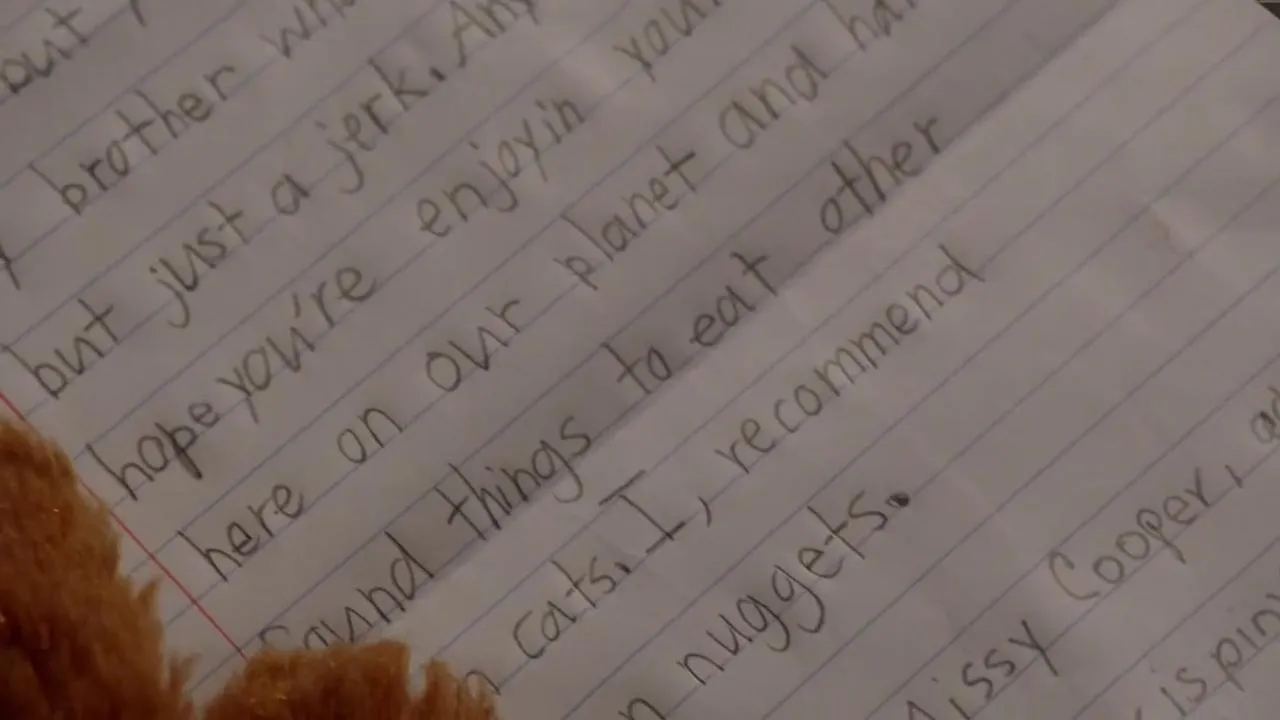 out
brother
but just a jerk.
hope you're enjoyin
here on our planet and
found things to eat other
cats. I, recommend
nuggets.
Missy Cooper,
is